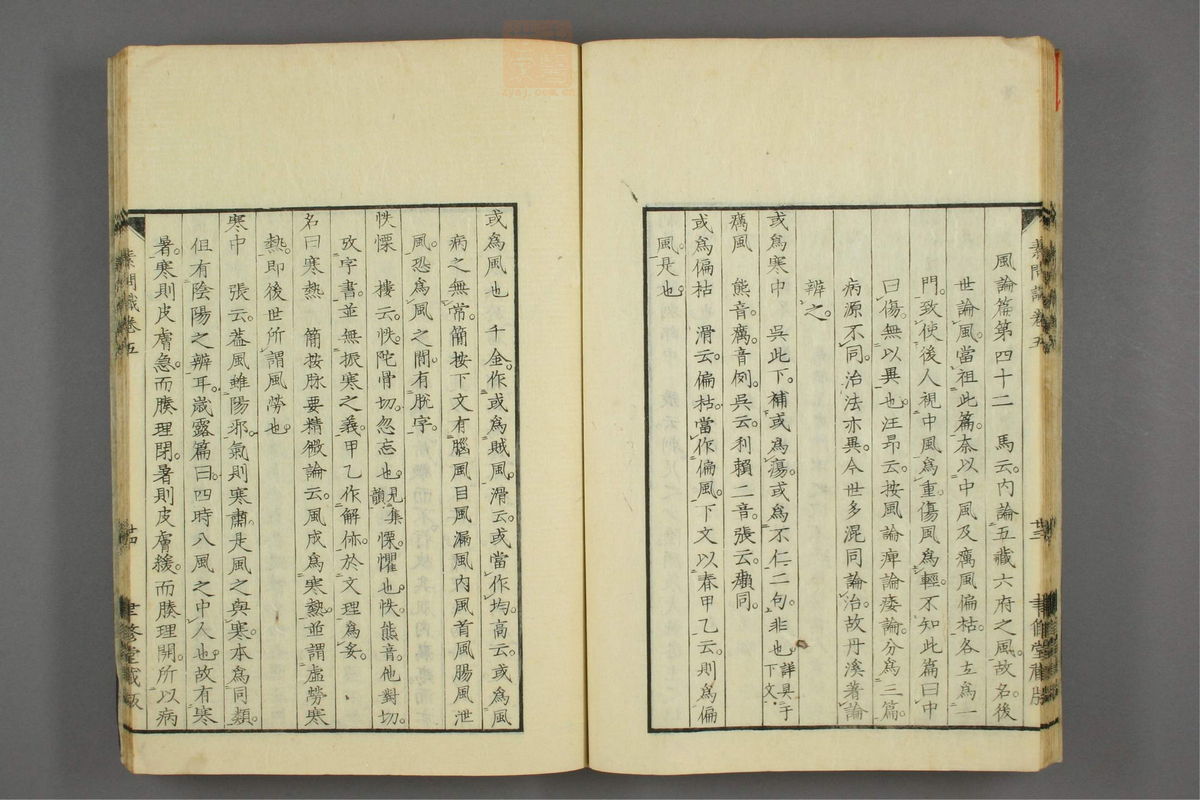 素問識卷五
風論篇第四十二　馬云内論五藏六府之風。故名。後
世論風。當祖此篇。奈以中風及癘風偏枯。各立爲一
門。致使後人視中風爲重。傷風爲輕。不知此篇曰中
曰傷。無以異也。汪昂云。按風論痺論痿論。分爲三篇。
病源不同。治法亦異。今世多混同論治。故丹溪著論
辨之。
或爲寒中　吳此下。補或爲瘍。或爲不仁二句。非也。詳具于下文
癘風　熊音。癘。音例。吳云。利賴二音。張云。癩同。
或爲偏枯　滑云。偏枯。當作偏風。下文以春甲乙云。則爲偏
風。是也。
廿三
聿修堂藏版
或爲風也　千金。作或爲賊風。滑云。或當作均。高云。或爲風
病之無常。簡按下文有腦風目風漏風内風首風腸風泄
風。恐爲風之間。有脫字。
怢慄　樓云。怢。陀骨切。忽忘也。見集韻慄。懼也。怢。熊音。他對切。
攷字書。並無振寒之義。甲乙作解㑊。於文理爲妥。
名曰寒熱　簡按脉要精微論云。風成爲寒熱。並謂虛勞寒
熱。即後世所謂風勞也。
寒中　張云。蓋風雖陽邪。氣則寒肅。是風之與寒。本爲同類。
但有陰陽之辨耳。歲露篇曰。四時八風之中人也。故有寒
暑。寒則皮膚急。而腠理閉。暑則皮膚緩。而腠理開。所以病
素問識卷五
廿四
聿修堂藏版